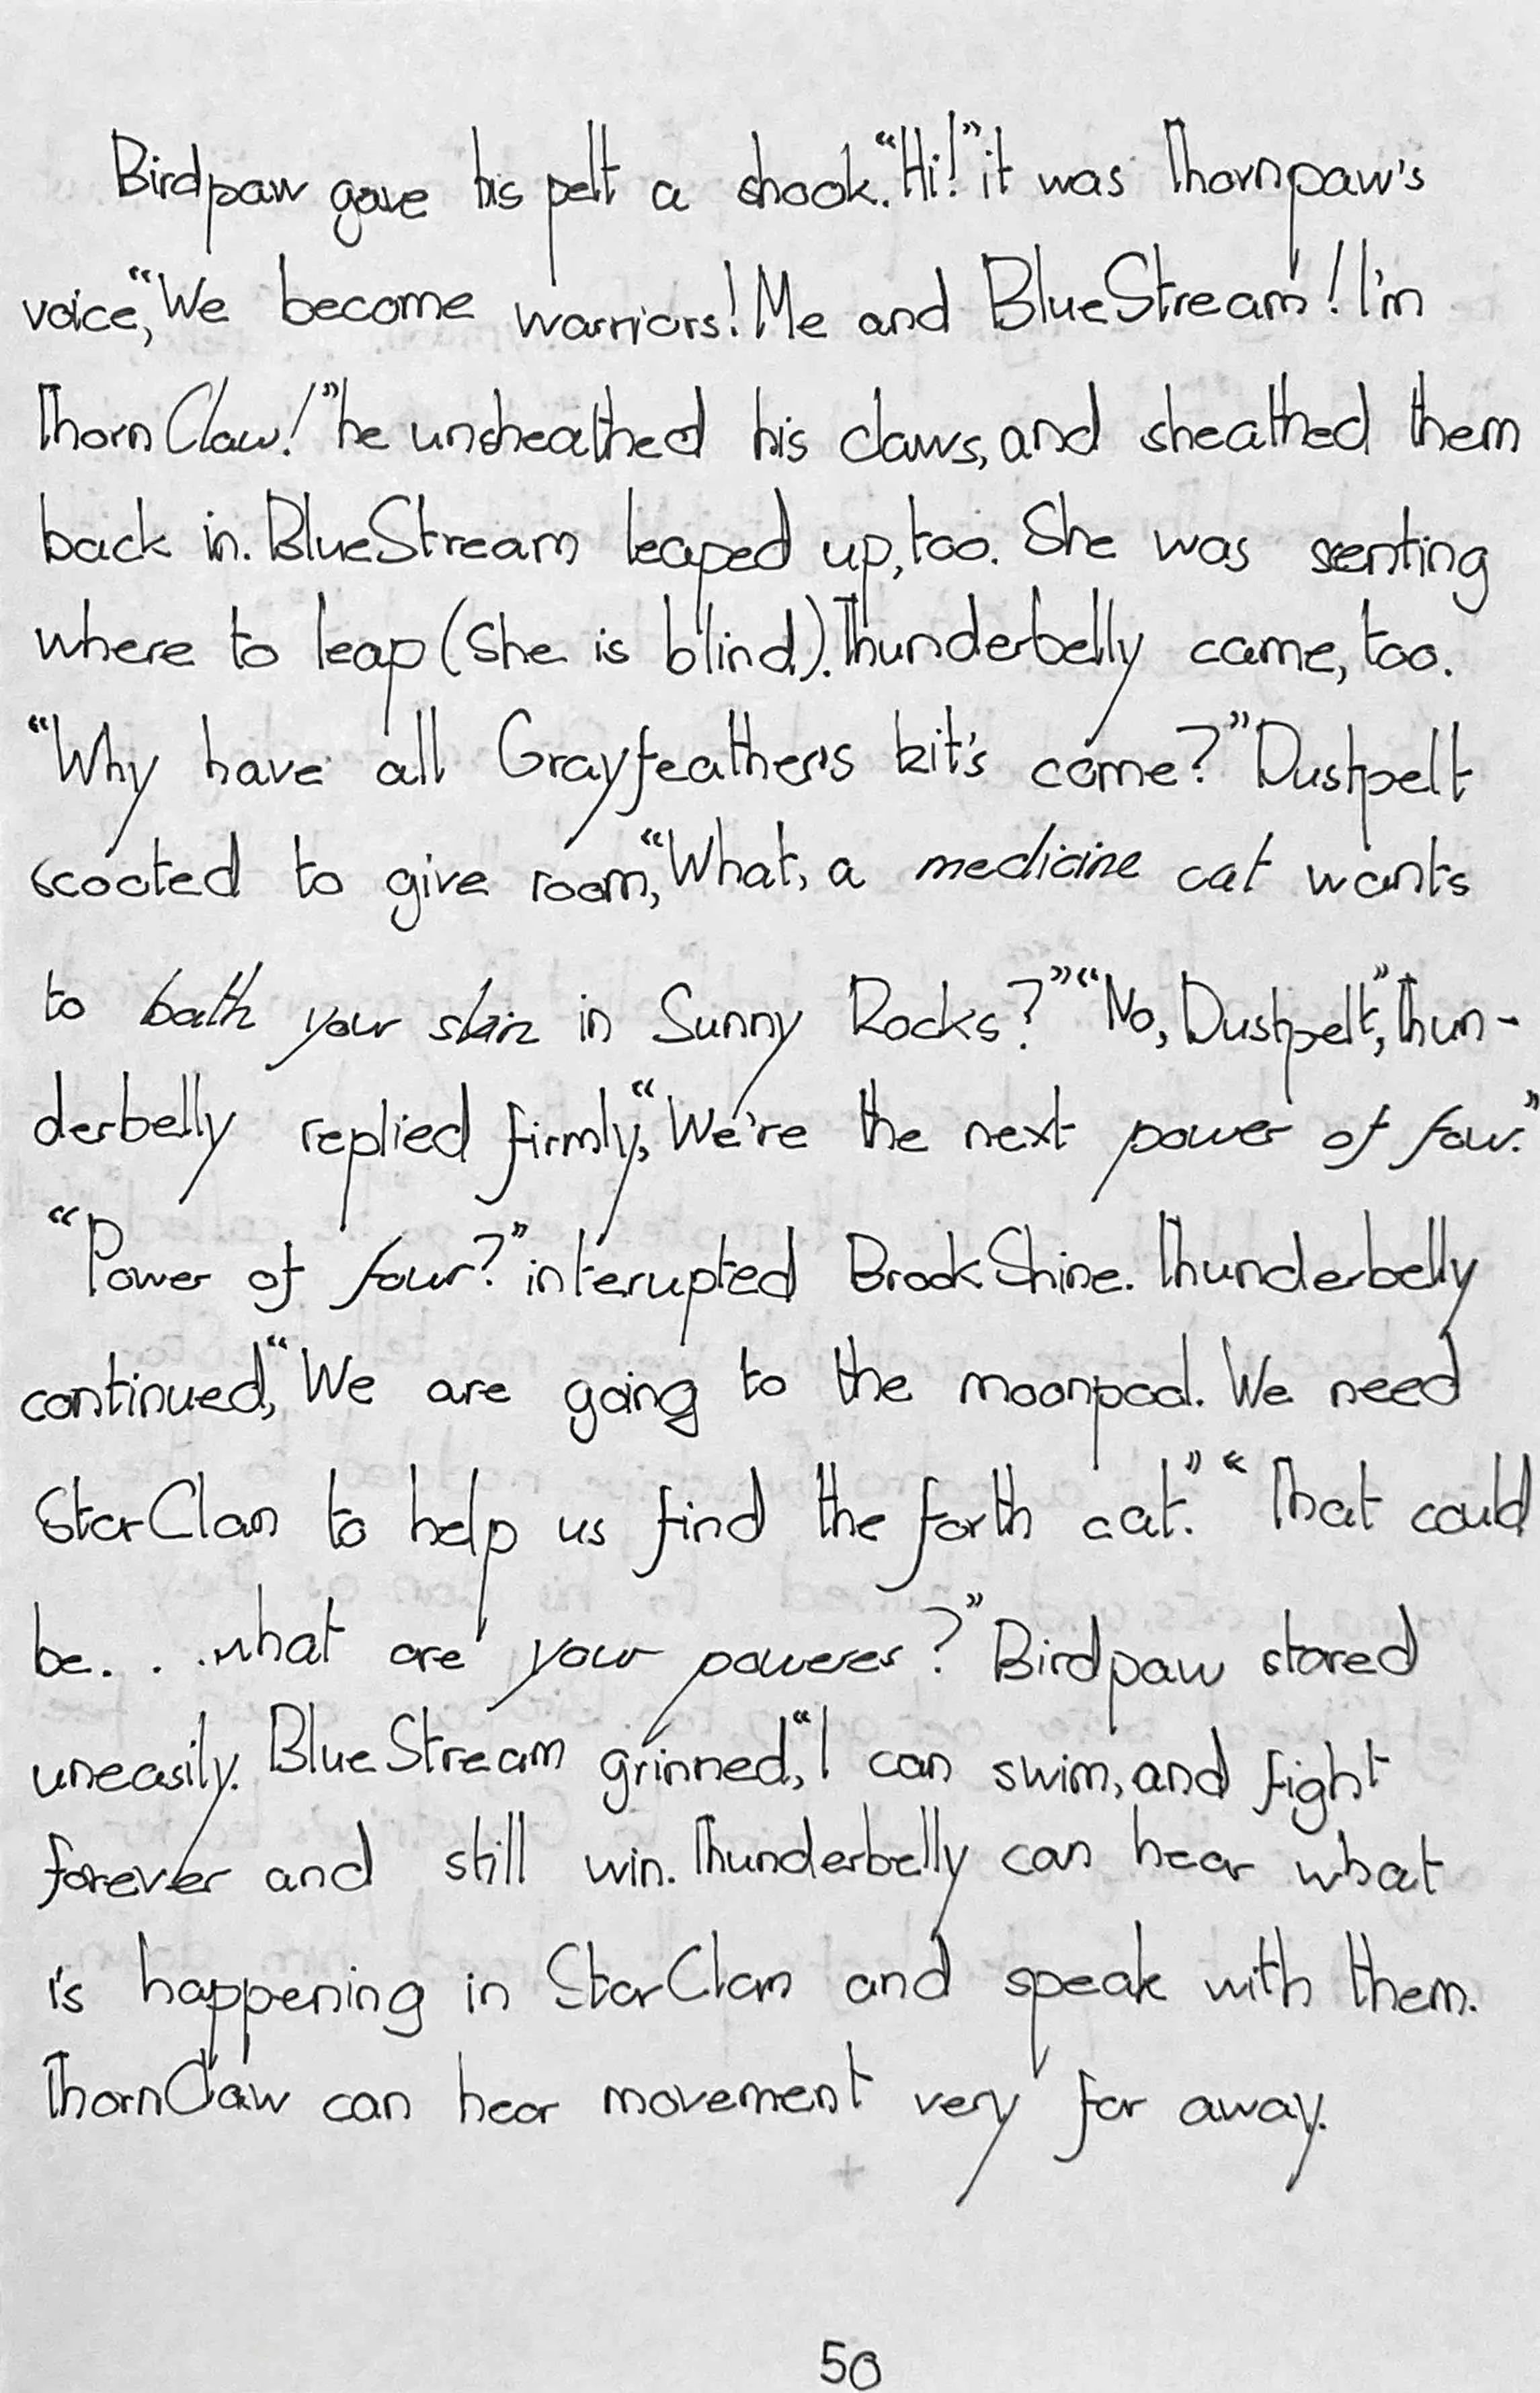 Birdpaw gave his pelt a shook. “Hi!” it was Thornpaw's
voice, “We become warriors! Me and BlueStream! I'm
ThornClaw!” he unsheathed his claws, and sheathed them
back in. BlueStream leaped up, too. She was senting
where to leap (She is blind). Thunderbelly came, too.
“Why have all Grayfeather's kit's come?” Dustpelt
scooted to give room, “What, a medicine cat wants
to bath your skin in Sunny Rocks?” “No, Dustpelt”, Thun-
derbelly replied firmly, “We're the next power of four.”
“Power of four?” interupted BrookShine. Thunderbelly
continued, “We are going to the moonpool. We need
StarClan to help us find the forth cat.” “That could
be. . .what are your poweres?” Birdpaw stared
uneasily. BlueStream grinned, “I can swim, and fight
forever and still win. Thunderbelly can hear what
is happening in StarClan and speak with them.
ThornClaw can hear movement very far away.
50